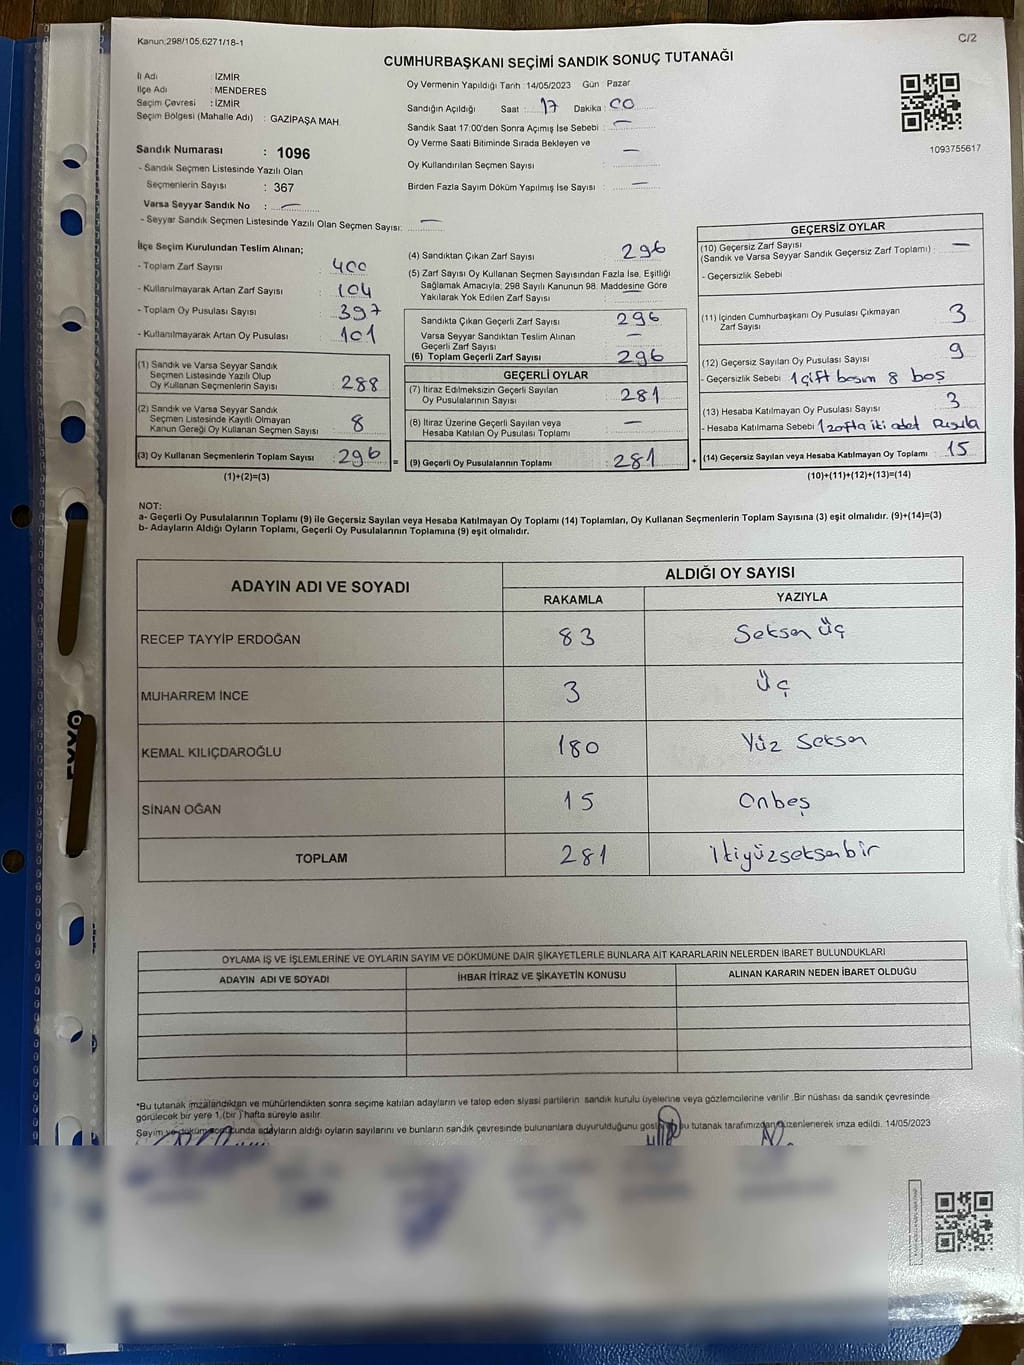 Kanun;298/105;6271/18-1
C/2
CUMHURBAŞKANI SEÇİMİ SANDIK SONUÇ TUTANAĞI
İl Adı : İZMİR
İlçe Adı : MENDERES
Seçim Çevresi : İZMİR
Seçim Bölgesi (Mahalle Adı) : GAZİPAŞA MAH.
Sandık Numarası : 1096
- Sandık Seçmen Listesinde Yazılı Olan
Seçmenlerin Sayısı : 367
Varsa Seyyar Sandık No : —
- Seyyar Sandık Seçmen Listesinde Yazılı Olan Seçmen Sayısı: —
Oy Vermenin Yapıldığı Tarih :14/05/2023 Gün Pazar
Sandığın Açıldığı Saat : 17 Dakika : 00
Sandık Saat 17:00'den Sonra Açımış İse Sebebi : —
Oy Verme Saati Bitiminde Sırada Bekleyen ve
Oy Kullandırılan Seçmen Sayısı : —
Birden Fazla Sayım Döküm Yapılmış İse Sayısı : —
1093755617
İlçe Seçim Kurulundan Teslim Alınan;
- Toplam Zarf Sayısı : 400
- Kullanılmayarak Artan Zarf Sayısı : 104
- Toplam Oy Pusulası Sayısı : 397
- Kullanılmayarak Artan Oy Pusulası : 101
(1) Sandık ve Varsa Seyyar Sandık
Seçmen Listesinde Yazılı Olup
Oy Kullanan Seçmenlerin Sayısı : 288
(2) Sandık ve Varsa Seyyar Sandık
Seçmen Listesinde Kayıtlı Olmayan
Kanun Gereği Oy Kullanan Seçmen Sayısı : 8
(3) Oy Kullanan Seçmenlerin Toplam Sayısı : 296
(1)+(2)=(3)
(4) Sandıktan Çıkan Zarf Sayısı : 296
(5) Zarf Sayısı Oy Kullanan Seçmen Sayısından Fazla İse, Eşitliği
Sağlamak Amacıyla; 298 Sayılı Kanunun 98. Maddesine Göre
Yakılarak Yok Edilen Zarf Sayısı : —
Sandıkta Çıkan Geçerli Zarf Sayısı : 296
Varsa Seyyar Sandıktan Teslim Alınan
Geçerli Zarf Sayısı : —
(6) Toplam Geçerli Zarf Sayısı : 296
GEÇERLİ OYLAR
(7) İtiraz Edilmeksizin Geçerli Sayılan
Oy Pusulalarının Sayısı : 281
(8) İtiraz Üzerine Geçerli Sayılan veya
Hesaba Katılan Oy Pusulası Toplamı : —
= (9) Geçerli Oy Pusulalarının Toplamı : 281 +
GEÇERSİZ OYLAR
(10) Geçersiz Zarf Sayısı
(Sandık ve Varsa Seyyar Sandık Geçersiz Zarf Toplamı) : —
- Geçersizlik Sebebi
(11) İçinden Cumhurbaşkanı Oy Pusulası Çıkmayan
Zarf Sayısı : 3
(12) Geçersiz Sayılan Oy Pusulası Sayısı : 9
- Geçersizlik Sebebi 1 çift basım 8 boş
(13) Hesaba Katılmayan Oy Pusulası Sayısı : 3
- Hesaba Katılmama Sebebi 1 zofta iki adet Pusula
(14) Geçersiz Sayılan veya Hesaba Katılmayan Oy Toplamı : 15
(10)+(11)+(12)+(13)=(14)
NOT:
a- Geçerli Oy Pusulalarının Toplamı (9) ile Geçersiz Sayılan veya Hesaba Katılmayan Oy Toplamı (14) Toplamları, Oy Kullanan Seçmenlerin Toplam Sayısına (3) eşit olmalıdır. (9)+(14)=(3)
b- Adayların Aldığı Oyların Toplamı, Geçerli Oy Pusulalarının Toplamına (9) eşit olmalıdır.
ADAYIN ADI VE SOYADI ALDIĞI OY SAYISI
RAKAMLA YAZIYLA
RECEP TAYYİP ERDOĞAN 83 Seksen Üç
MUHARREM İNCE 3 Üç
KEMAL KILIÇDAROĞLU 180 Yüz Seksen
SİNAN OĞAN 15 Onbeş
TOPLAM 281 İkiyüzseksenbir
OYLAMA İŞ VE İŞLEMLERİNE VE OYLARIN SAYIM VE DÖKÜMÜNE DAİR ŞİKAYETLERLE BUNLARA AİT KARARLARIN NELERDEN İBARET BULUNDUKLARI
ADAYIN ADI VE SOYADI İHBAR İTİRAZ VE ŞİKAYETİN KONUSU ALINAN KARARIN NEDEN İBARET OLDUĞU
*Bu tutanak imzalandıktan ve mühürlendikten sonra seçime katılan adayların ve talep eden siyasi partilerin sandık kurulu üyelerine veya gözlemcilerine verilir .Bir nüshası da sandık çevresinde
görülecek bir yere 1 (bir ) hafta süreyle asılır.
Sayım ve döküm sonucunda adayların aldığı oyların sayılarını ve bunların sandık çevresinde bulunanlara duyurulduğunu gösterir bu tutanak tarafımızdan düzenlenerek imza edildi. 14/05/2023